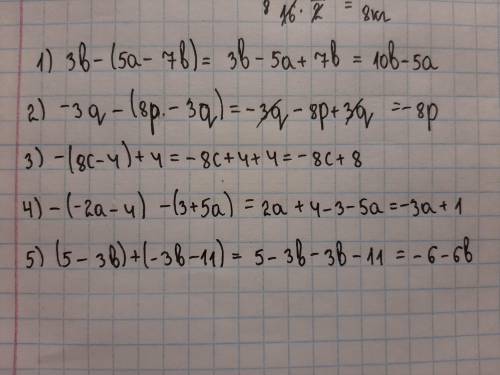 8 16 · 2 = 8кл
1) 3b-(5a-7b)= 3b-5a+7b = 10b-5a
2) -3q-(8p-3q)=-3q-8p+3q =-8p
3) -(8c-4)+4=-8c+4+4=-8c+8
4) -(-2a-4) -(3+5a) = 2a+4-3-5a=-3a+1
5) (5-3b)+(-3b-11)= 5-3b-3b-11 =-6-6b